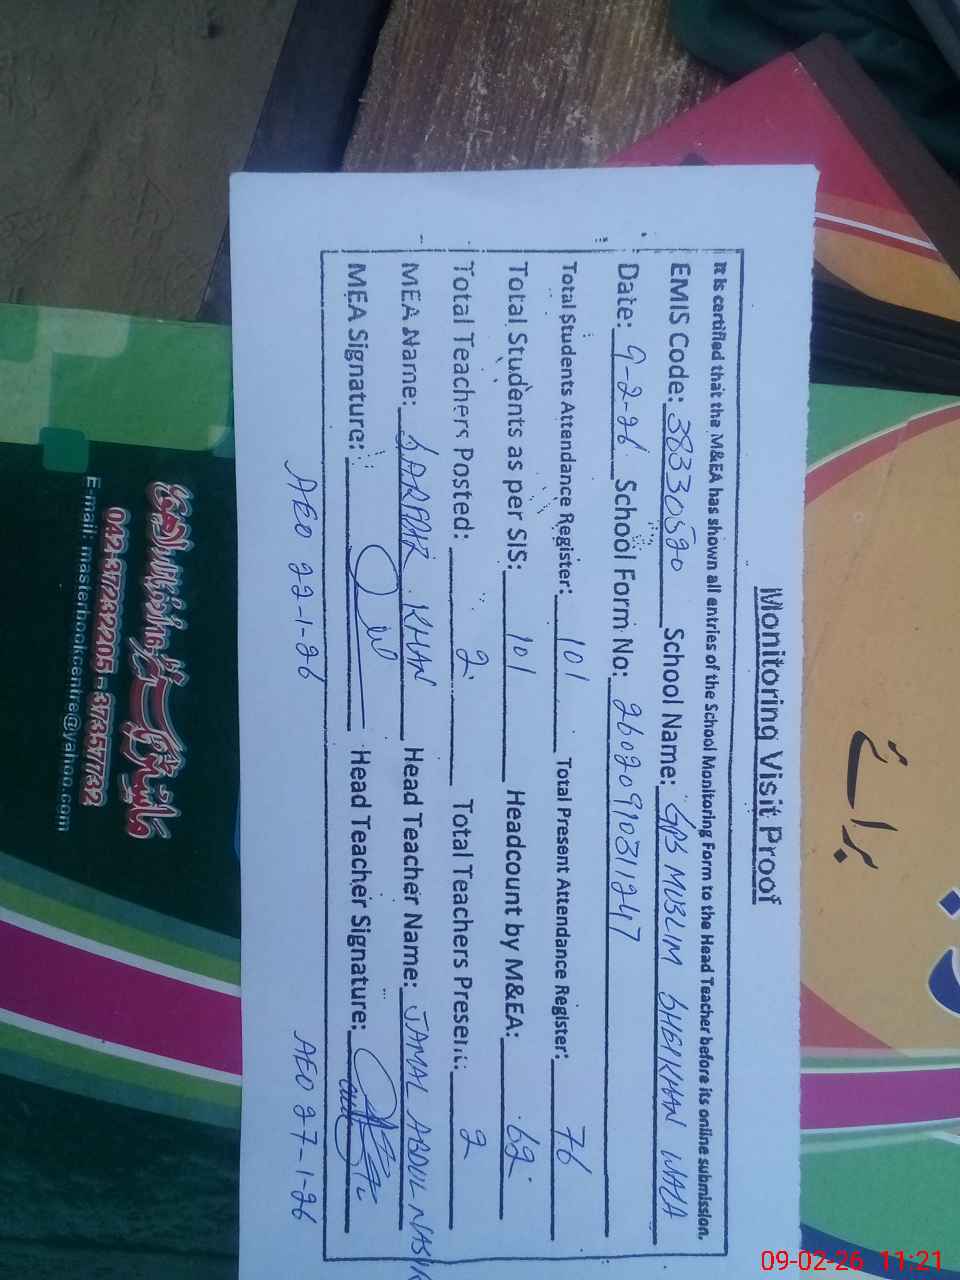 Monitoring Visit Proof
It is certified that the M&EA has shown all entries of the School Monitoring Form to the Head Teacher before its online submission.
EMIS Code: 38330520 School Name: GPS MUSLIM SHERKHAN WALA
Date: 9-2-26 School Form No: 26020910311247
Total Students Attendance Register: 101 Total Present Attendance Register: 76
Total Students as per SIS: 101 Headcount by M&EA: 62
Total Teachers Posted: 2 Total Teachers Present: 2
MEA Name: SARFRAZ KHAN Head Teacher Name: JAMAL ABDUL NASIR
MEA Signature: Head Teacher Signature:
AEO 22-1-26 AEO 27-1-26
042-37232205 - 37357732
E-mail: masterbookcentre@yahoo.com
09-02-26 11:21